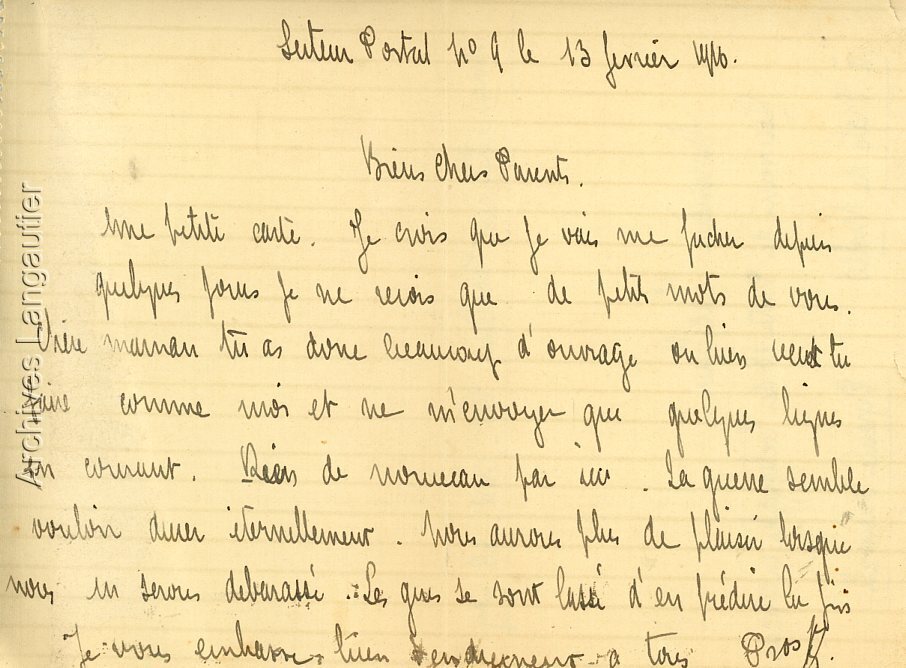 Secteur Postal No 9 le 13 fevrier 1916.
Biens chers Parents.
Une petite carte. Je crois que je vais me facher depuis
quelques jours je ne recois que de petits mots de vous.
maman tu as donc beaucoup d'ouvrage ou bien veut tu
faire comme moi et ne m'envoyer que quelques lignes
en courant. Rien de nouveau par ici. La guerre semble
vouloir durer éternellement. Nous aurons plus de plaisir lorsque
nous en serons debarassé. Les gens se sont lassé d'en prédire la fin
Je vous embrasse bien tendrement a tous
Archives Langautier